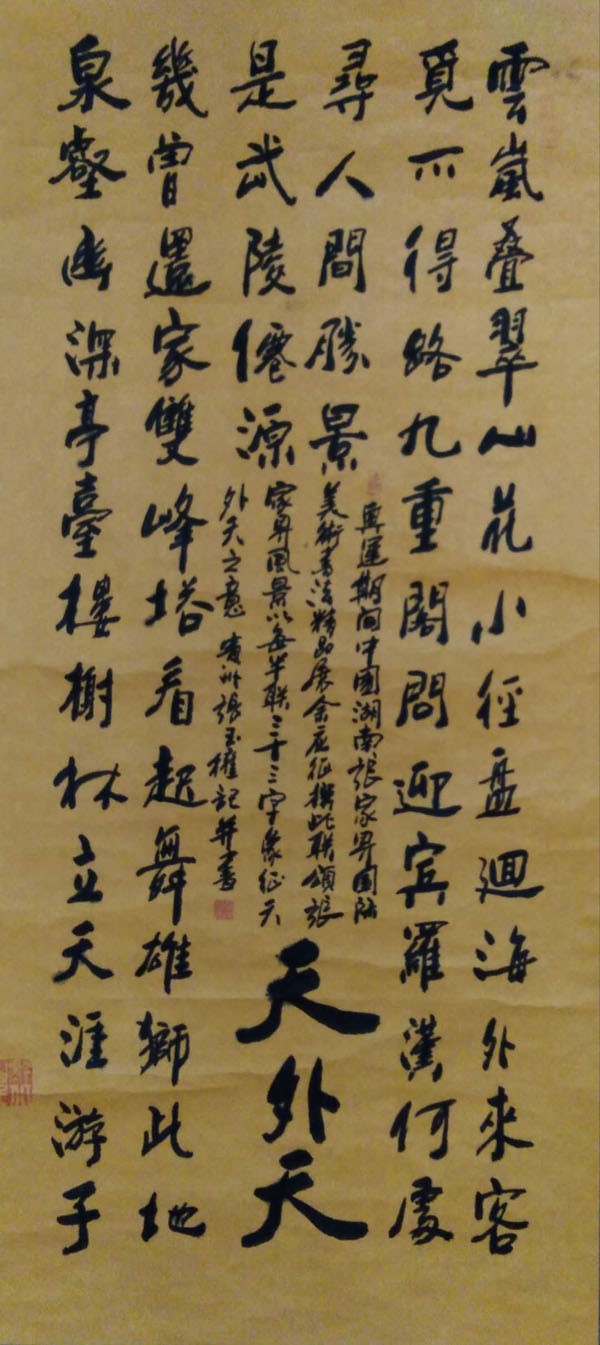 雲嵐叠翠山花小徑盘迴海外來客
覓不得路九重閣問迎宾羅漢何處
尋人間勝景
泉壑幽深亭臺樓榭林立天涯游子
幾曾還家雙峰塔看起舞雄獅此地
是武陵僊源
奥運期间中國湖南張家界国际
美術書法精品展余应征撰此联颂張
家界風景以每半联三十三字象征天
外天之意 贵州張玉權記并書
天外天